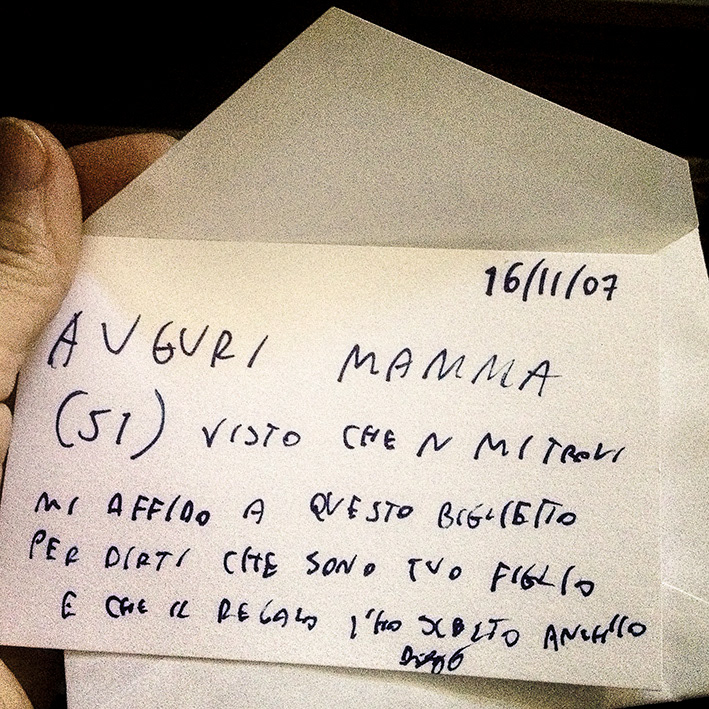 16/11/07
AUGURI MAMMA
(51) VISTO CHE N MI TROVI
MI AFFIDO A QUESTO BIGLIETTO
PER DIRTI CHE SONO TUO FIGLIO
E CHE IL REGALO L'HO SCELTO ANCH'IO